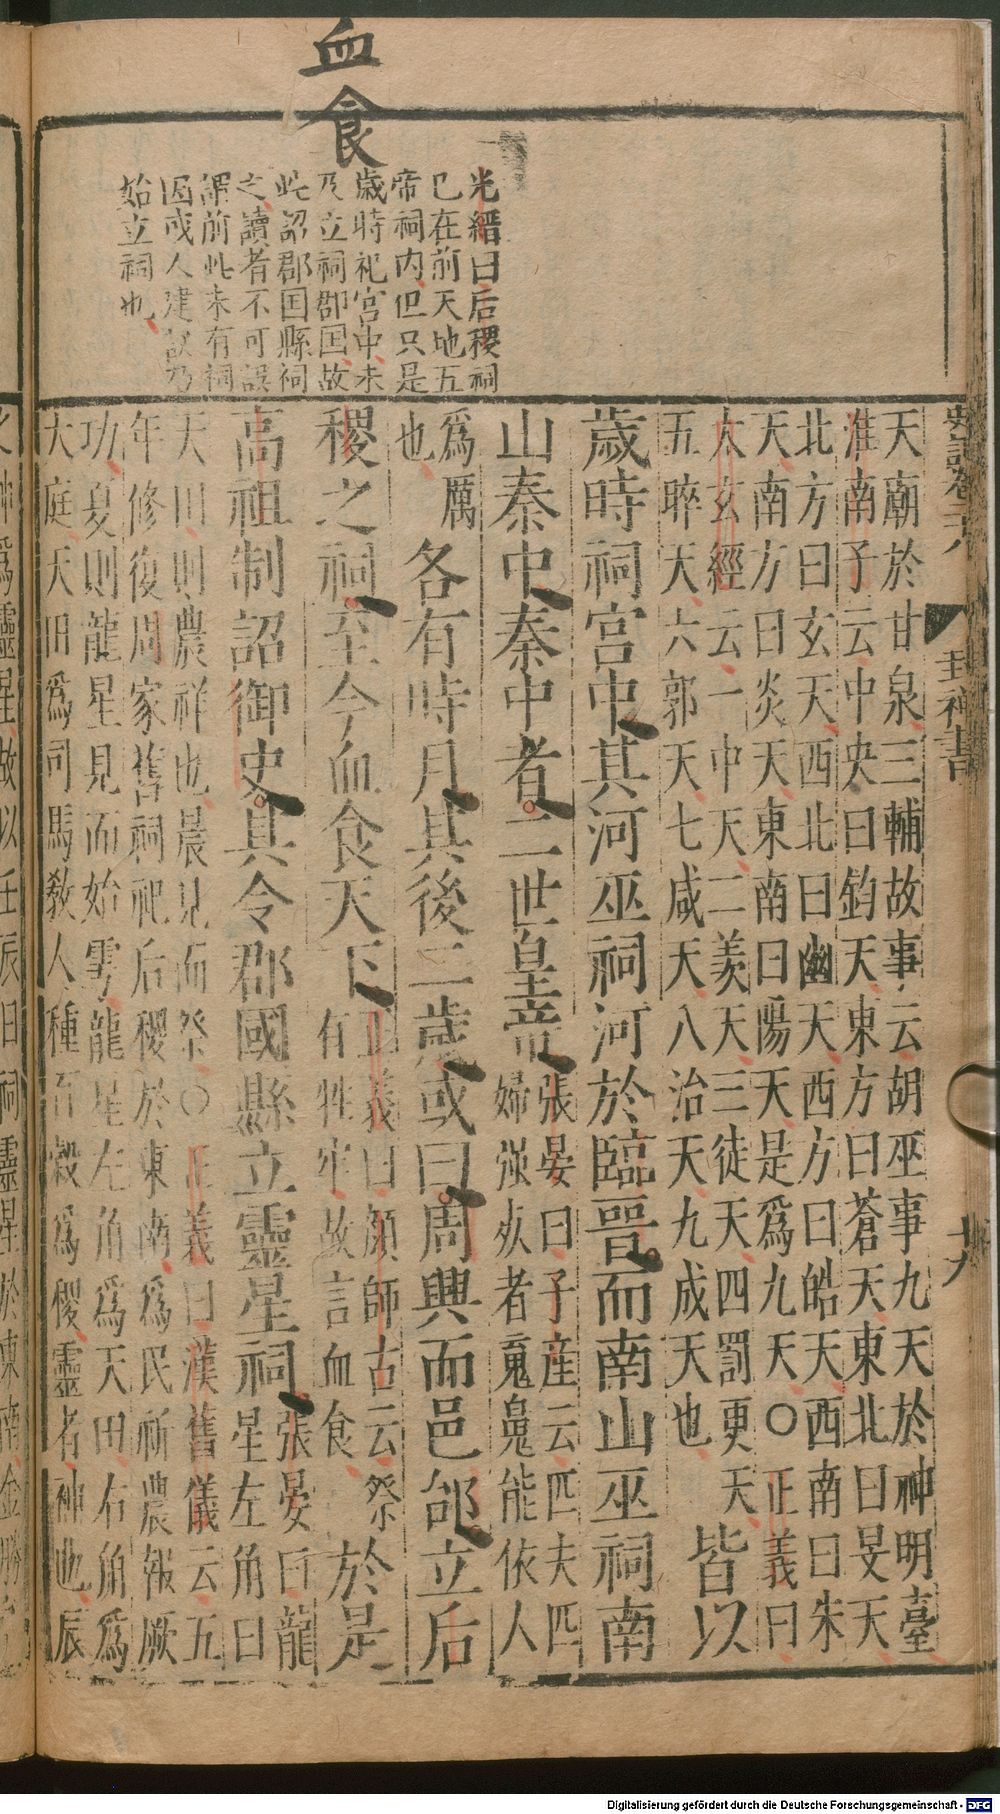 血食
光縉曰后稷祠
已在前天地五
帝祠内但只是
歲時祀宮中未
及立祠郡囯故
此詔郡囯縣祠
之讀者不可誤
謂前此未有祠
因或人建議乃
始立祠也
史記卷二十八
封禪書
十九
天廟於甘泉三輔故事云胡巫事九天於神明臺
淮南子云中央曰鈞天東方曰蒼天東北曰旻天
北方曰玄天西北曰幽天西方曰皓天西南曰朱
天南方曰炎天東南曰陽天是爲九天○正義曰
太玄經云一中天二羨天三徒天四罰更天
五晬天六郭天七咸天八治天九成天也
皆以
歲時祠宮中其河巫祠河於臨晉而南山巫祠南
山秦中秦中者二世皇帝
張晏曰子產云匹夫匹
婦强死者䰟鬼能依人
爲厲
也
各有時月其後二歲或曰周興而邑邰立后
稷之祠至今血食天下
正義曰顔師古云祭
有牲牢故言血食
於是
高祖制詔御史其令郡國縣立靈星祠
張晏曰龍
星左角曰
天田則農祥也晨見而祭○正義曰漢舊儀云五
年修復周家舊祠祀后稷於東南爲民祈農報厥
功夏則龍星見而始雩龍星左角爲天田右角爲
大庭天田爲司馬敎人種百穀爲稷靈者神也辰
之神爲靈星故以壬辰日祠靈星於東南金勝
Digitalisierung gefördert durch die Deutsche Forschungsgemeinschaft - DFG